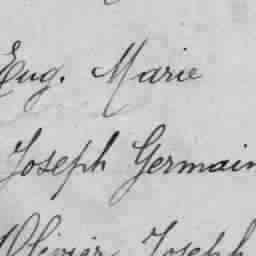 Eug. Marie
Joseph Germain
Olivier Joseph